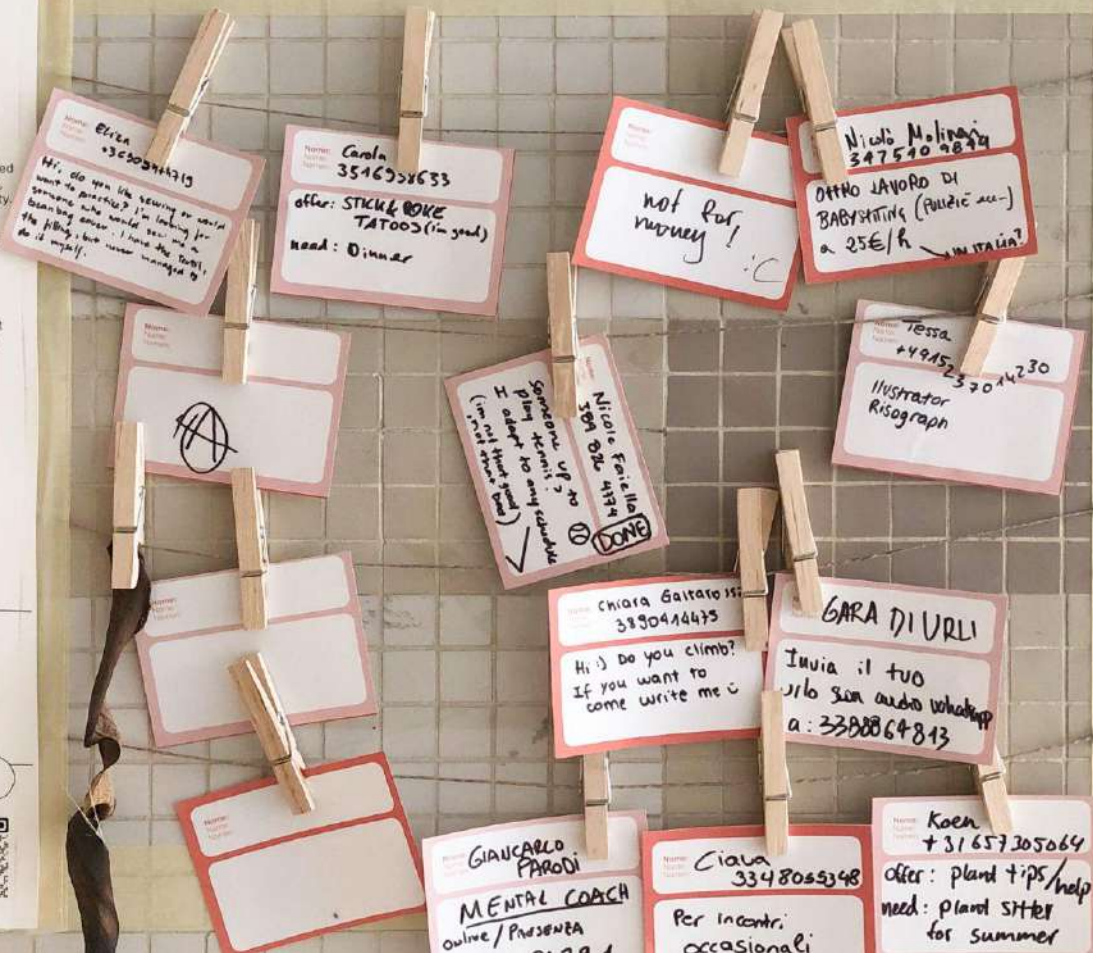 Name: Eliza
+36309444719
Hi, do you like sewing or would
want to practice? i'm looking for
someone who would sew me a
beanbag cover. I have the textil,
the filling, but never managed to
do it myself.
Name: Carola
3516938633
offer: STICK & POKE
TATOOS (im good)
need: Dinner
Name:
not for
money! :C
Nicolò Molinari
3475409844
OFFRO LAVORO DI
BABYSITTING (PULIZIE ecc-)
a 25€/h
IN ITALIA?
Name:
Name: Tessa
+4915237014230
Ilustrator
Risograph
Nicole Faiella
389 826 4774
DONE
Someone up to
play tennis?
I adapt to any schedule
(im not that good
, not that bad)
Name:
Name: Chiara Gaitarossa
3890414475
Hi :) Do you climb?
If you want to
come write me
GARA DI URLI
Invia il tuo
urlo son audio whatsapp
a: 3388864813
Name:
GIANCARLO
PARODI
MENTAL COACH
Online / PRESENZA
Name: Ciava
3348055348
Per incontri
occasionali
Name: Koen
+31657305064
offer: plant tips/help
need: plant sitter
for summer